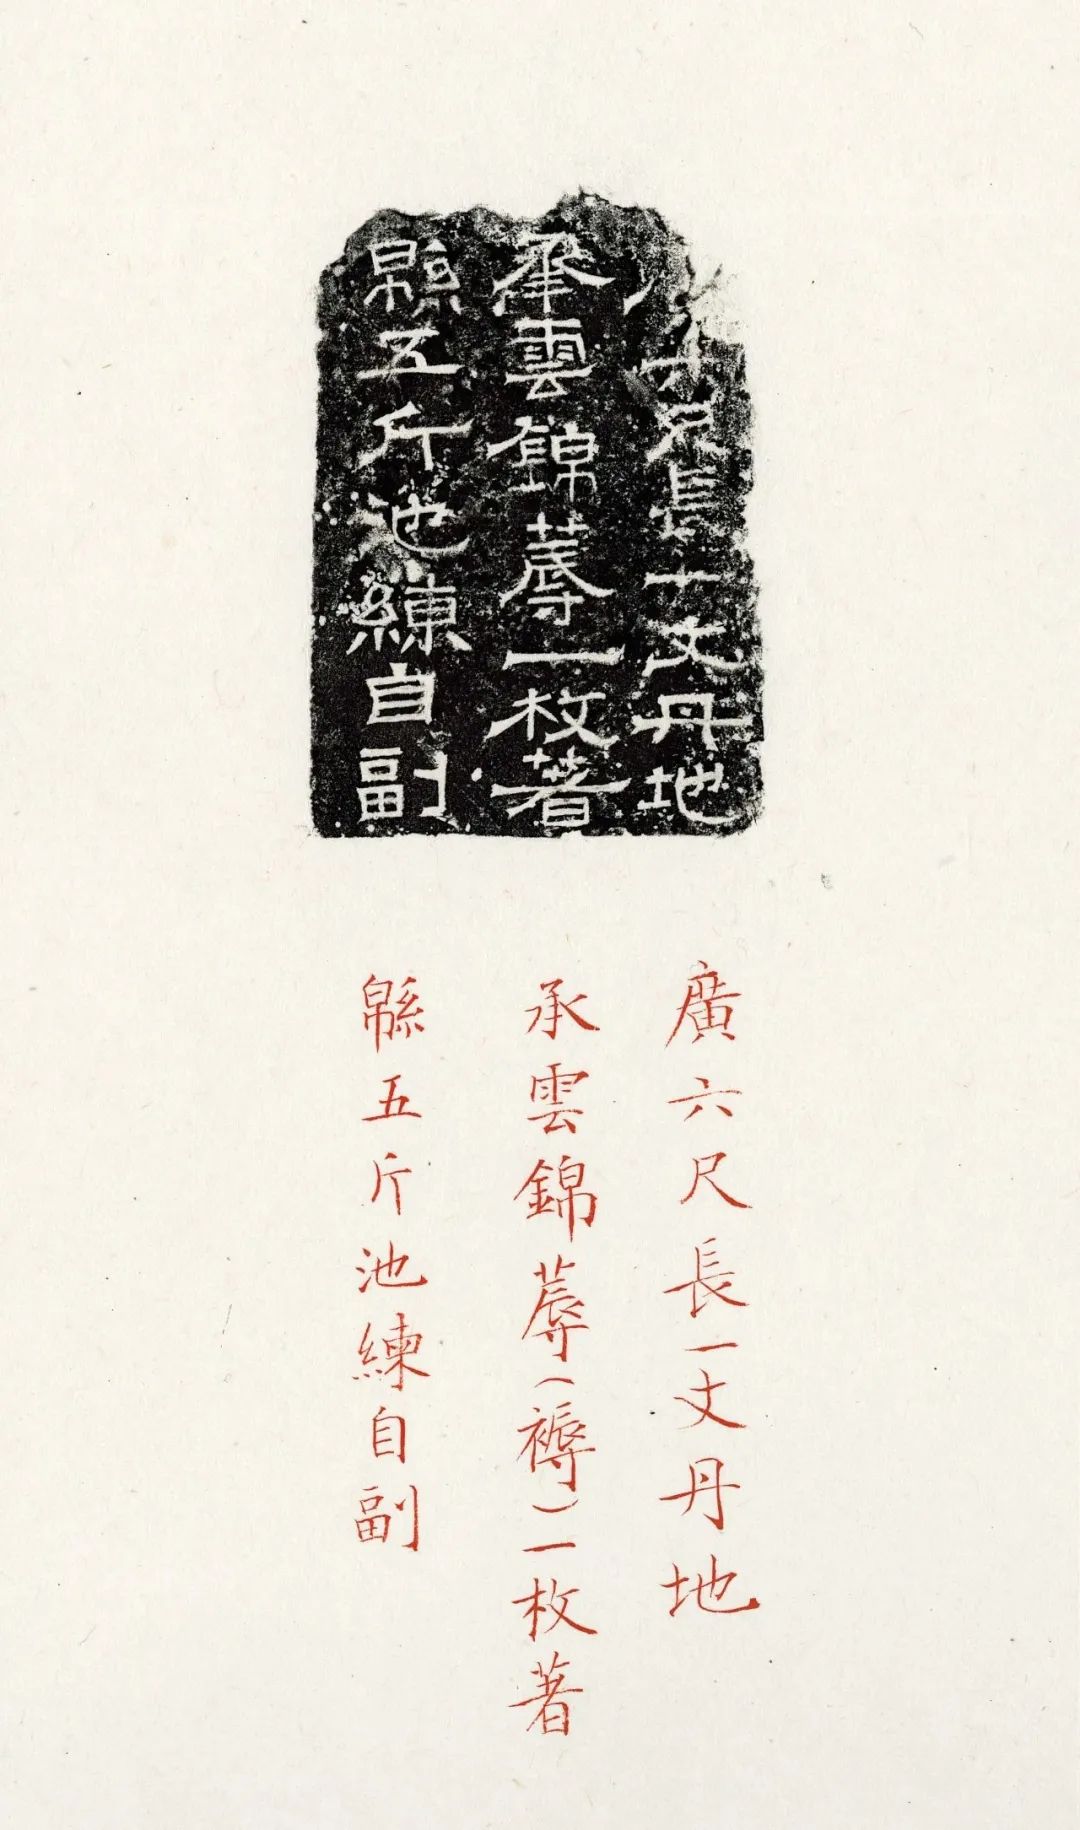 六尺長一丈丹地
承雲錦蓐一枚著
緜五斤池練自副
廣六尺長一丈丹地
承雲錦蓐(褥)一枚著
緜五斤池練自副